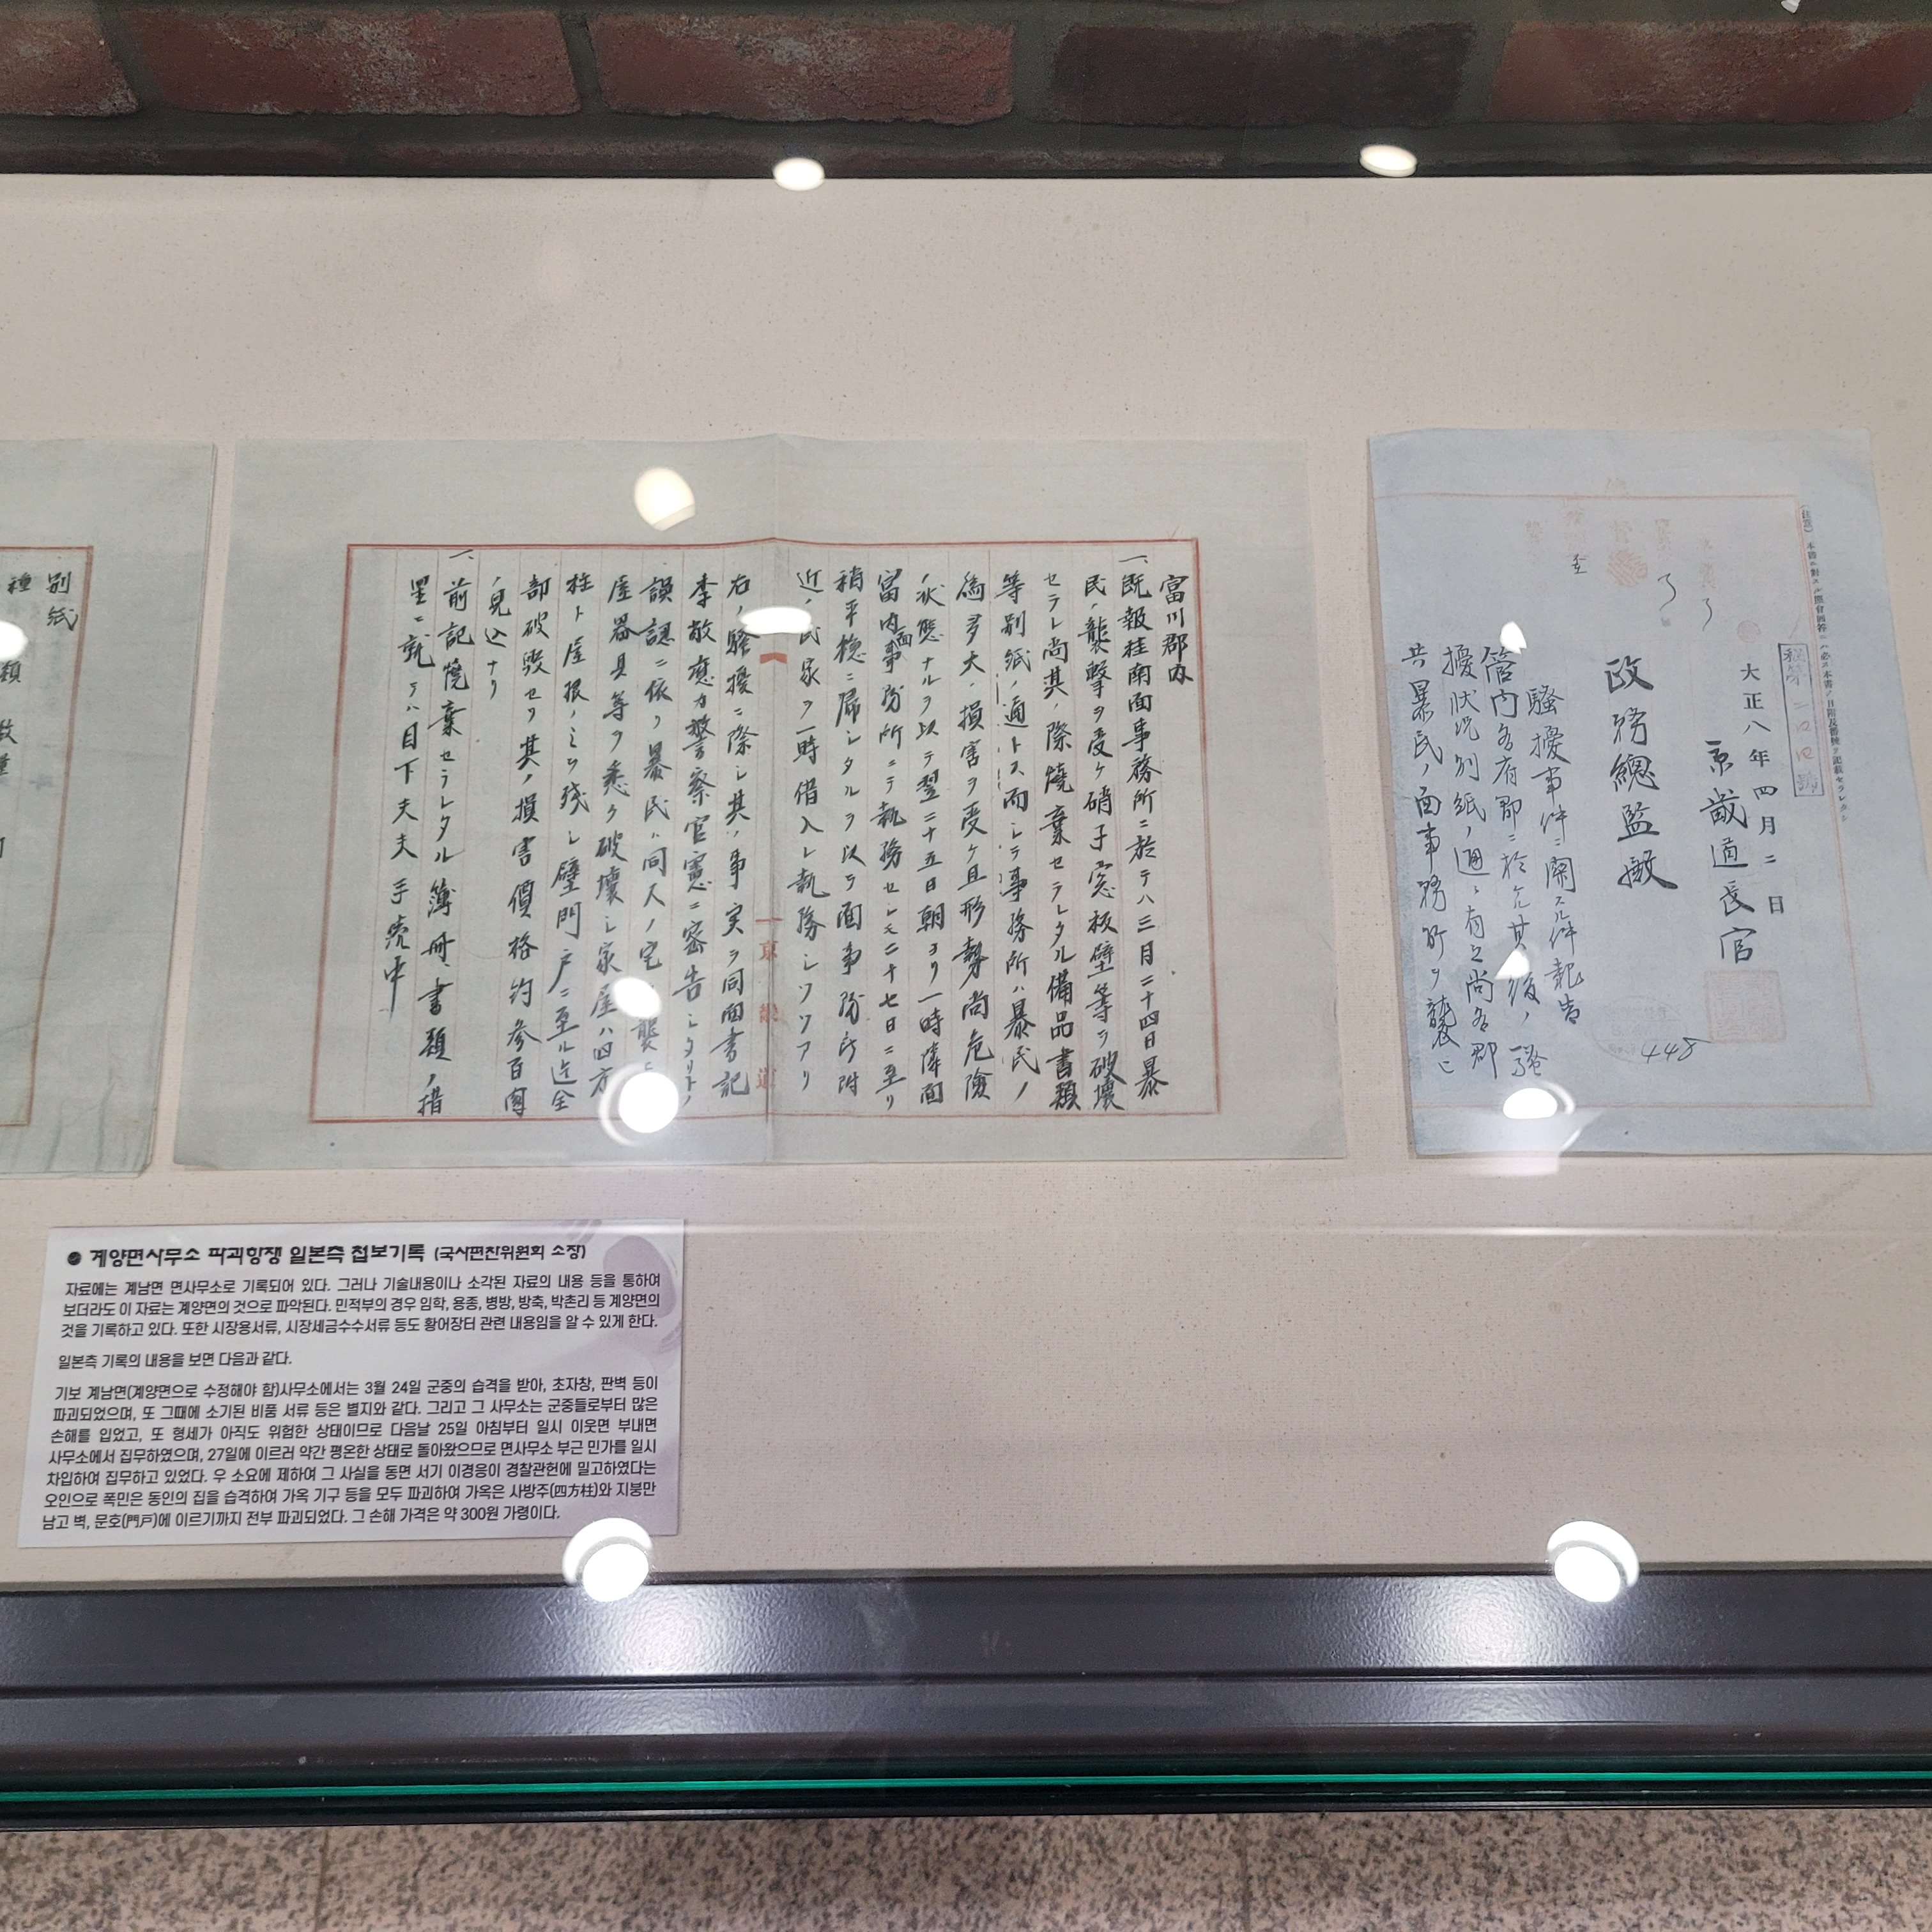 大正八年四月二日
京畿道長官
政務總監殿
騷擾事件ニ關スル件報告
管内各府郡ニ於ケル其ノ後ノ騷
擾狀況別紙ノ通ニ有之尚各郡
共暴民ノ面事務所ヲ襲ヒ
448
富川郡内
一、既報桂南面事務所ニ於テハ三月二十四日暴
民ノ襲擊ヲ受ケ硝子窓板壁等ヲ破壞
セラレ尚其ノ際燒棄セラレタル備品書類
等別紙ノ通トス而シテ事務所ハ暴民ノ
爲多大ノ損害ヲ受ケ且形勢尚危險
ノ狀態ナルヲ以テ翌二十五日朝ヨリ一時隣面
富内面事務所ニテ執務セシモ二十七日ニ至リ
稍平穩ニ歸シタルヲ以テ面事務所附
近ノ民家ヲ一時借入レ執務シツツアリ
右ノ騷擾ニ際シ其ノ事実ヲ同面書記
李敬應カ警察官憲ニ密告シタリトノ
誤認ニ依リ暴民ハ同人ノ宅 襲
屋器具等ヲ悉ク破壞シ家屋ハ四方
柱ト屋根ノミヲ残シ壁門戸ニ至ル迄全
部破毀セリ其ノ損害價格約參百圓
ノ見込ナリ
一、前記燒棄セラレタル簿冊、書類ノ措
置ニ就テハ目下夫夫手続中
京畿道
別紙
種類
계양면사무소 파괴항쟁 일본측 첩보기록 (국사편찬위원회 소장)
자료에는 계남면 면사무소로 기록되어 있다. 그러나 기술내용이나 소각된 자료의 내용 등을 통하여
보더라도 이 자료는 계양면의 것으로 파악된다. 민적부의 경우 임학, 용종, 병방, 방축, 박촌리 등 계양면의
것을 기록하고 있다. 또한 시장용서류, 시장세금수수서류 등도 황어장터 관련 내용임을 알 수 있게 한다.
일본측 기록의 내용을 보면 다음과 같다.
기보 계남면(계양면으로 수정해야 함)사무소에서는 3월 24일 군중의 습격을 받아, 초자창, 판벽 등이
파괴되었으며, 또 그때에 소기된 비품 서류 등은 별지와 같다. 그리고 그 사무소는 군중들로부터 많은
손해를 입었고, 또 형세가 아직도 위험한 상태이므로 다음날 25일 아침부터 일시 이웃면 부내면
사무소에서 집무하였으며, 27일에 이르러 약간 평온한 상태로 돌아왔으므로 면사무소 부근 민가를 일시
차입하여 집무하고 있었다. 우 소요에 제하여 그 사실을 동면 서기 이경응이 경찰관헌에 밀고하였다는
오인으로 폭민은 동인의 집을 습격하여 가옥 기구 등을 모두 파괴하여 가옥은 사방주(四方柱)와 지붕만
남고 벽, 문호(門戶)에 이르기까지 전부 파괴되었다. 그 손해 가격은 약 300원 가령이다.